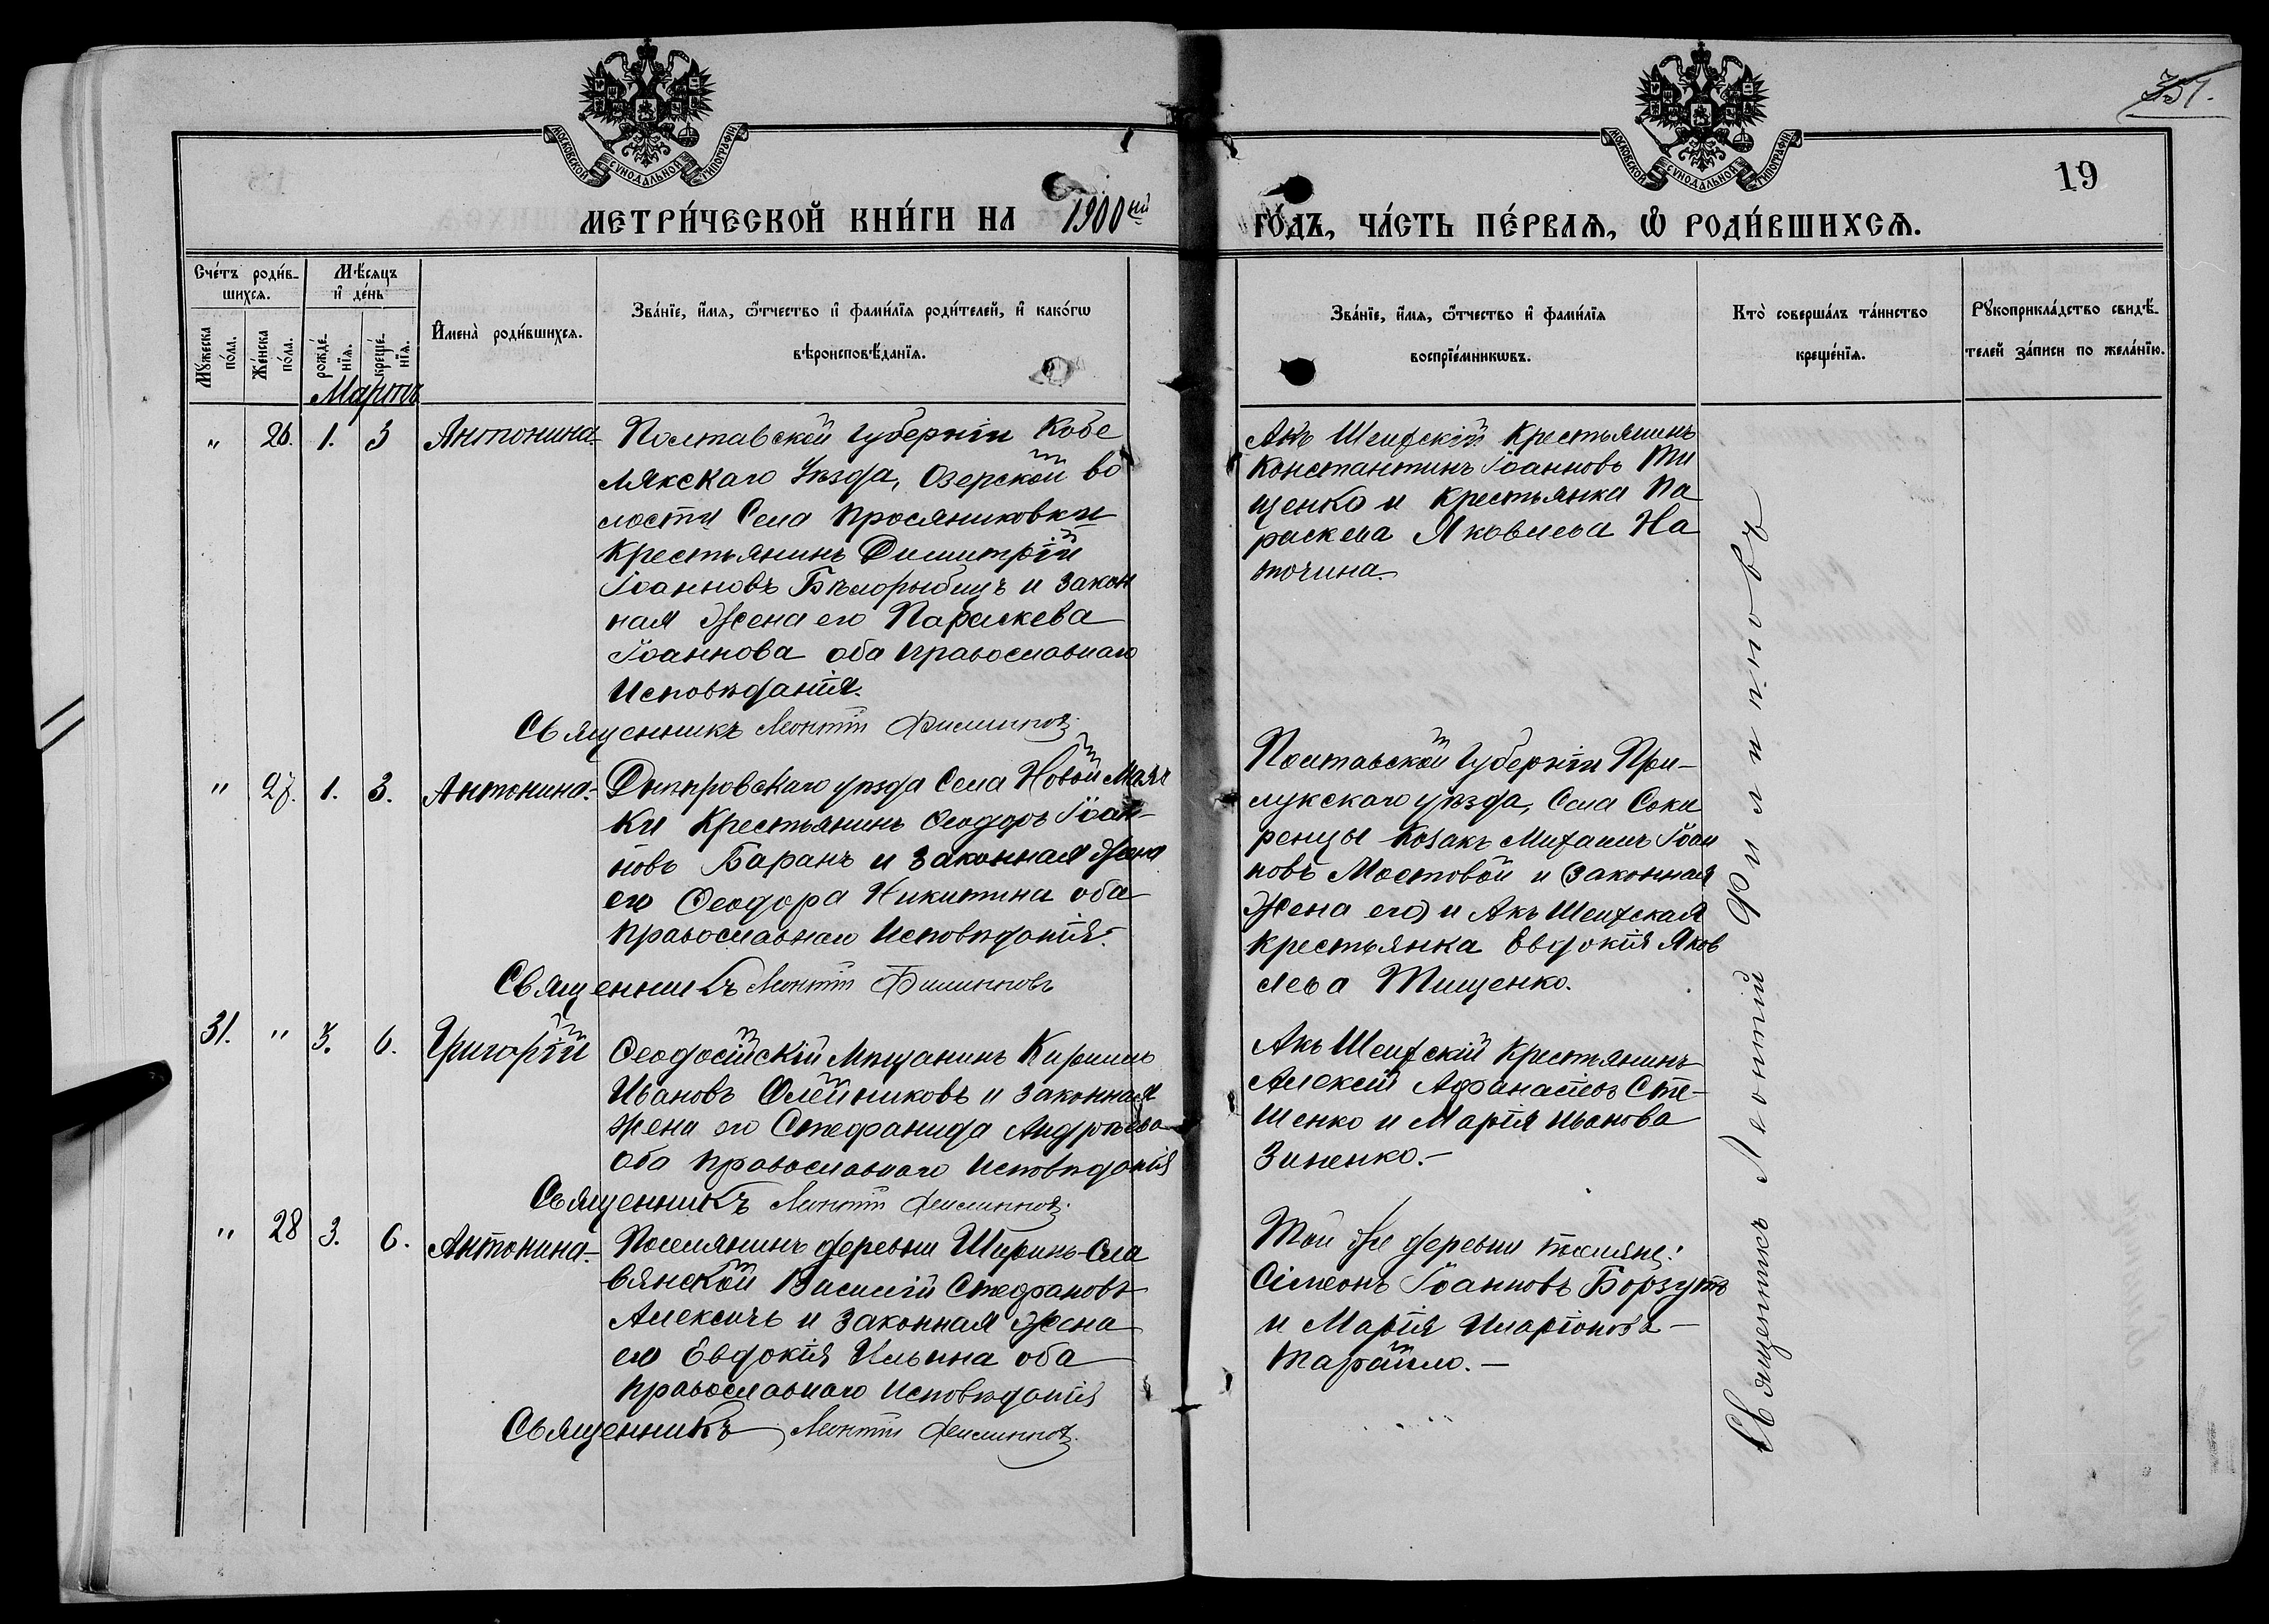 МОСКОВСКОЙ СѴНОДАЛЬНОЙ ТИПОГРАФІИ
МОСКОВСКОЙ СѴНОДАЛЬНОЙ ТИПОГРАФІИ
351.
19
МЕТРИ́ЧЕСКОЙ КНИ́ГИ НА 1900ый ГО́ДЪ, ЧА́СТЬ ПЕ́РВАѦ, Ѡ҆ РОДИ́ВШИХСѦ.
Сче́тъ роди́в-
шихсѧ.
Мѣ́сѧцъ
и҆ де́нь
Мꙋ́жеска по́ла.
Же́нска по́ла.
рожде́-нїѧ.
креще́-нїѧ.
И҆мена̀ роди́вшихсѧ.
Зва́нїе, и҆́мѧ, ѻ҆́тчество и҆ фами́лїѧ роди́телей, и҆ како́гѡ
вѣроисповѣ́данїѧ.
Зва́нїе, и҆́мѧ, ѻ҆́тчество и҆ фами́лїѧ
воспрїе́мникѡвъ.
Кто̀ соверша́лъ та́инство
креще́нїѧ.
Рꙋкоприкла́дство свидѣ́-
телей за́писи по жела́нїю.
Мартъ
" 26. 1. 3 Антонина- Полтавской Губерніи Кобе
лякскаго Уѣзда, Озерской во
лости Села Просяниковки
Крестьянинъ Димитрій
Іоанновъ Бѣлорыбицъ и закон
ная Жена его Параскева
Іоаннова оба православнаго
Исповѣданія.
Священникъ Леонтій Филипповъ
Акъ Шеихскій Крестьянинъ
Константинъ Іоанновъ Ти
щенко и Крестьянка Па
раскева Яковлева На
точина.
" 27. 1. 3. Антонина- Днѣпровскаго уѣзда Села Новой Маяч
ки Крестьянинъ Ѳеодоръ Іоан-
новъ Баранъ и законная Жена
его Ѳеодора Никитина оба
православнаго Исповѣданія.
Священникъ Леонтій Филипповъ
Полтавской Губерніи При-
лукскаго уѣзда, Села Соки
ренцы Козакъ Михаилъ Іоан
новъ Мостовой и (законная
Жена его) и Акъ Шеихская
крестьянка Евдокія Яков
лева Тищенко.
31. " 3. 6. Григорій Ѳеодосійскій Мѣщанинъ Кириллъ
Ивановъ Олейниковъ и законная
жена его Стефанида Андреева
оба православнаго Исповѣданія
Священникъ Леонтій Филипповъ
Акъ Шеихскій Крестьянинъ
Алексій Афанасіевъ Сте-
шенко и Марія Иванова
Зиненко.-
" 28 3. 6. Антонина- Поселянинъ деревни Ширинъ-Сла
вянской Василій Стефановъ
Алексичъ и законная Жена
его Евдокія Ильина оба
православнаго Исповѣданія
Священникъ Леонтій Филипповъ
Той же деревни поселяне:
Сімеонъ Іоанновъ Борзутъ
и Марія Иларіонова-
Тарайло.-
Священникъ Леонтій Филипповъ